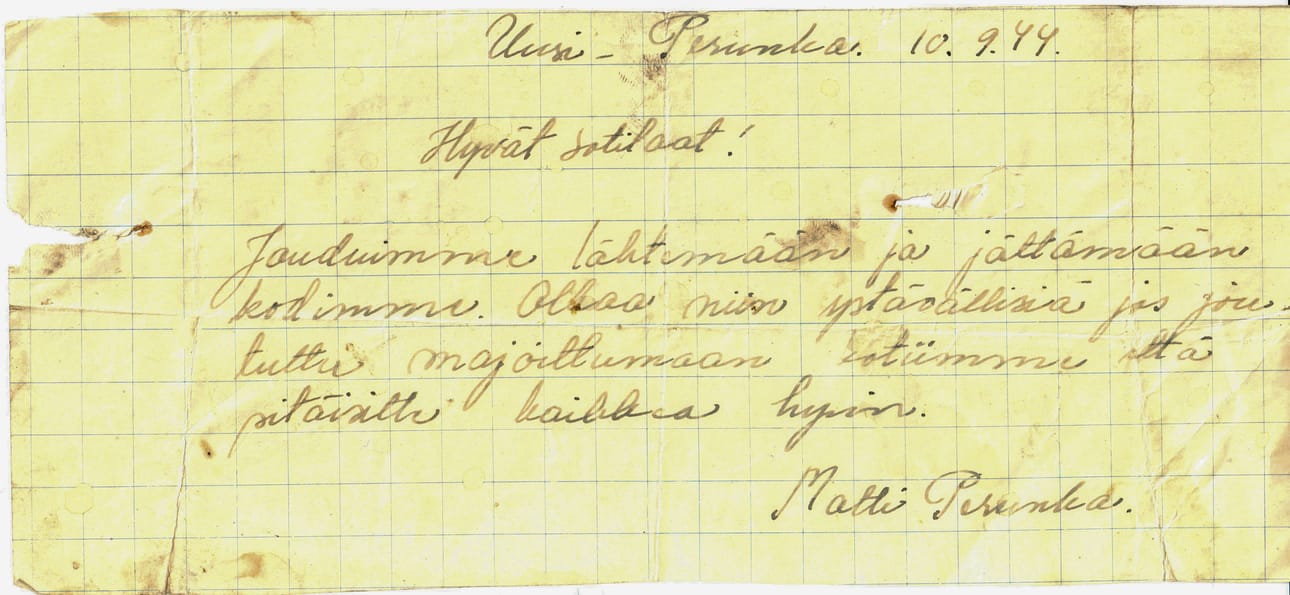 Uusi - Perunka. 10. 9. 44.
Hyvät sotilaat!
Jouduimme lähtemään ja jättämään
kodimme. Olkaa niin ystävällisiä jos jou-
tutte majoittumaan kotiimme että
pitäisitte kaikkea hyvin.
Matti Perunka.